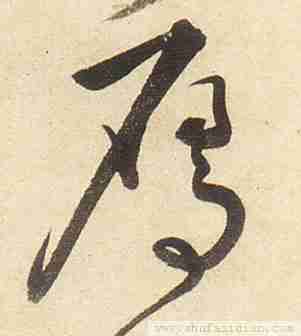 鴈
www.shufazidian.com